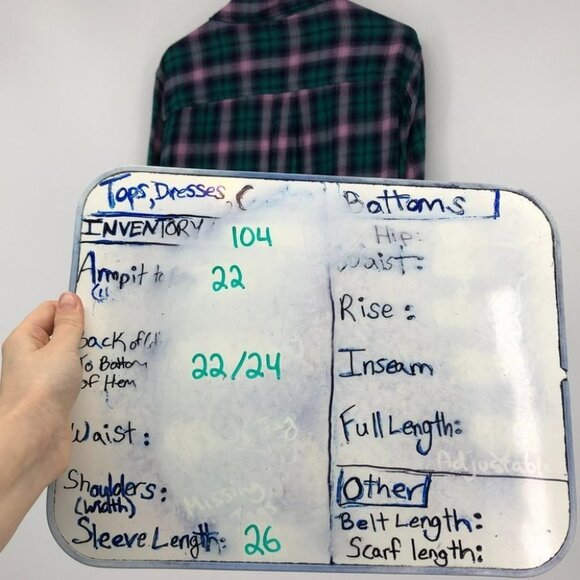 Tops, Dresses, C
INVENTORY 104
Armpit to 22
Back of
To Bottom 22/24
of Hem
Waist:
Shoulders:
(width)
Missing
Sleeve Length: 26
Bottoms
Hip:
Waist:
Rise:
Inseam
Full Length:
Adjustabl
Other
Belt Length:
Scarf length: